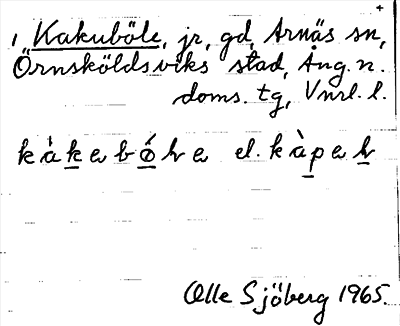 +
1 Kakuböle, jr, gd, Arnäs sn,
Örnsköldsviks stad, Ång. n.
doms. tg, Vnrl. l.
Olle Sjöberg 1965.